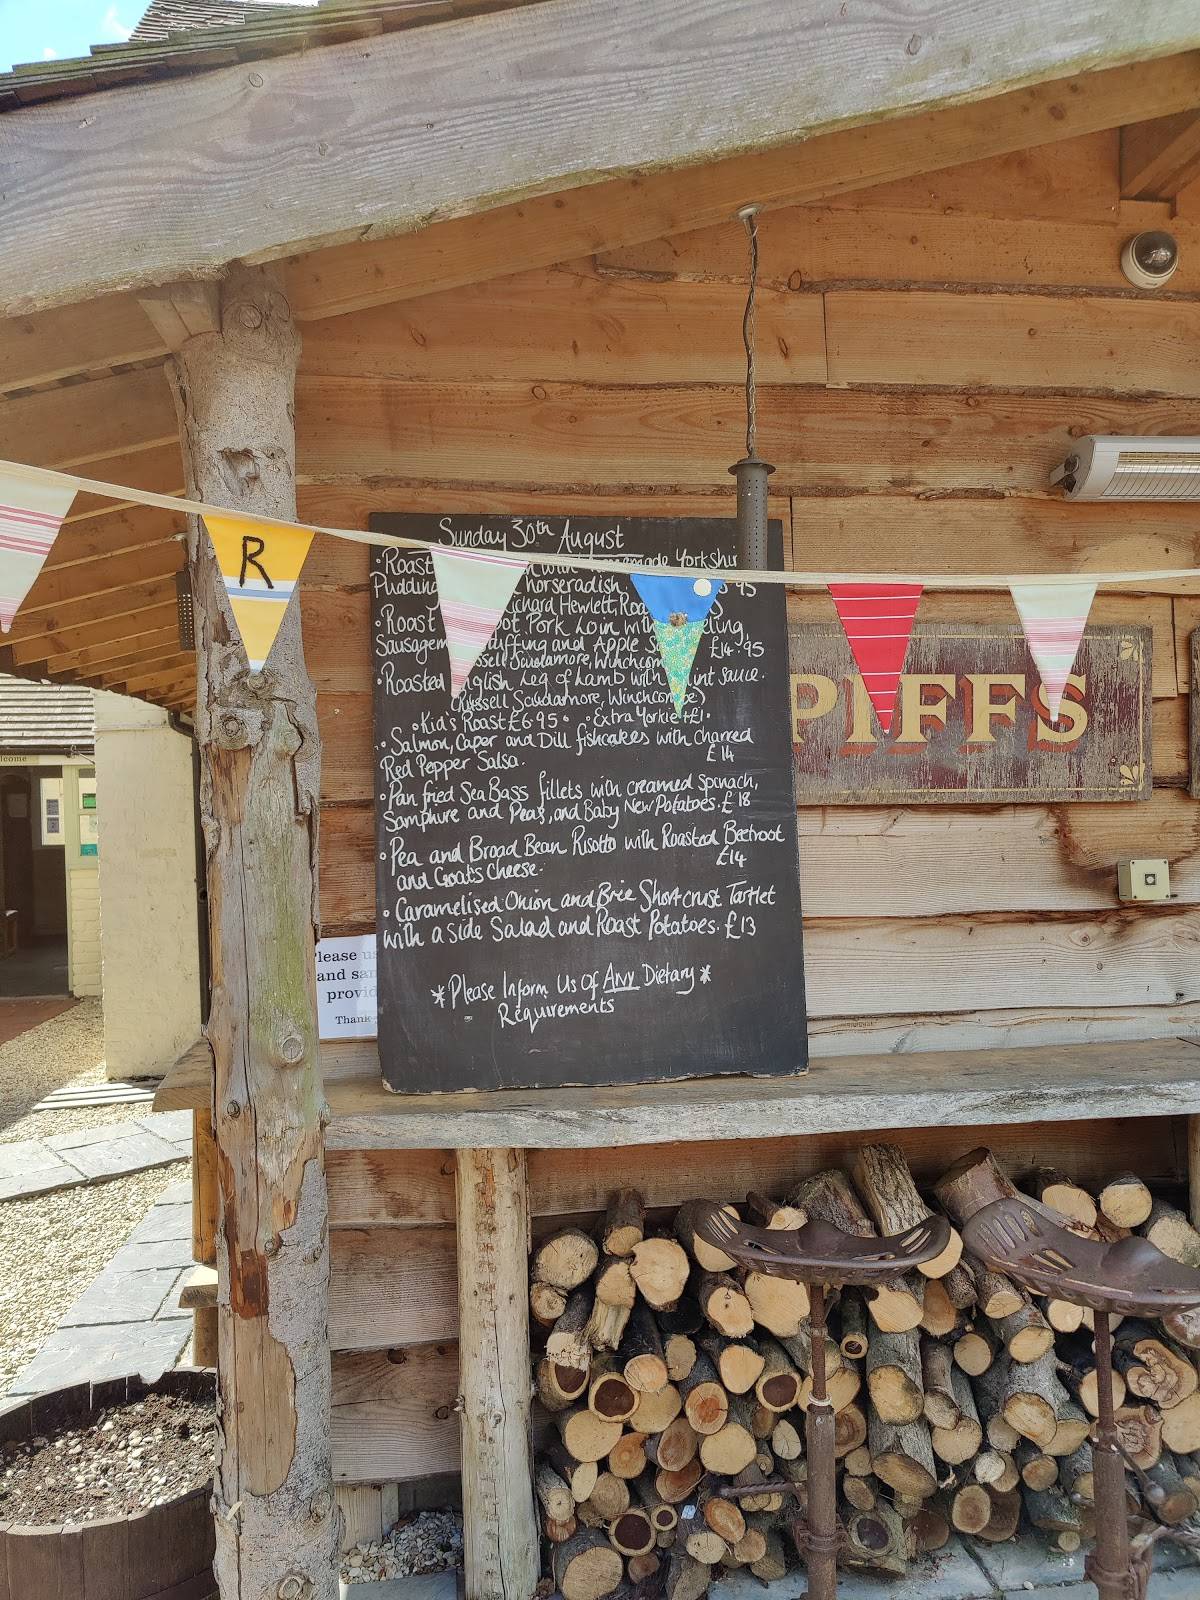 Sunday 30th August
• Roast with homemade Yorkshir
Pudding horseradish. 95
Richard Hewlett,
• Roast Pork Loin with
Sausagem Stuffing and Apple £14.95
Russell Scudamore, Winchcom
• Roasted English Leg of Lamb with Mint sauce.
(Russell Scudamore, Winchcombe)
• Kid's Roast £6.95 • • Extra Yorkie +£1•
• Salmon, Caper and Dill fishcakes with charred
Red Pepper Salsa. £14
• Pan fried Sea Bass fillets with creamed spinach,
Samphire and Peas, and Baby New Potatoes. £18
• Pea and Broad Bean Risotto with Roasted Beetroot
and Goats Cheese. £14
• Caramelised Onion and Brie Shortcrust Tartlet
with a side Salad and Roast Potatoes. £13
*Please Inform Us Of Any Dietary*
Requirements
R
PIFFS
lcome
Please us
and san
provid
Thank